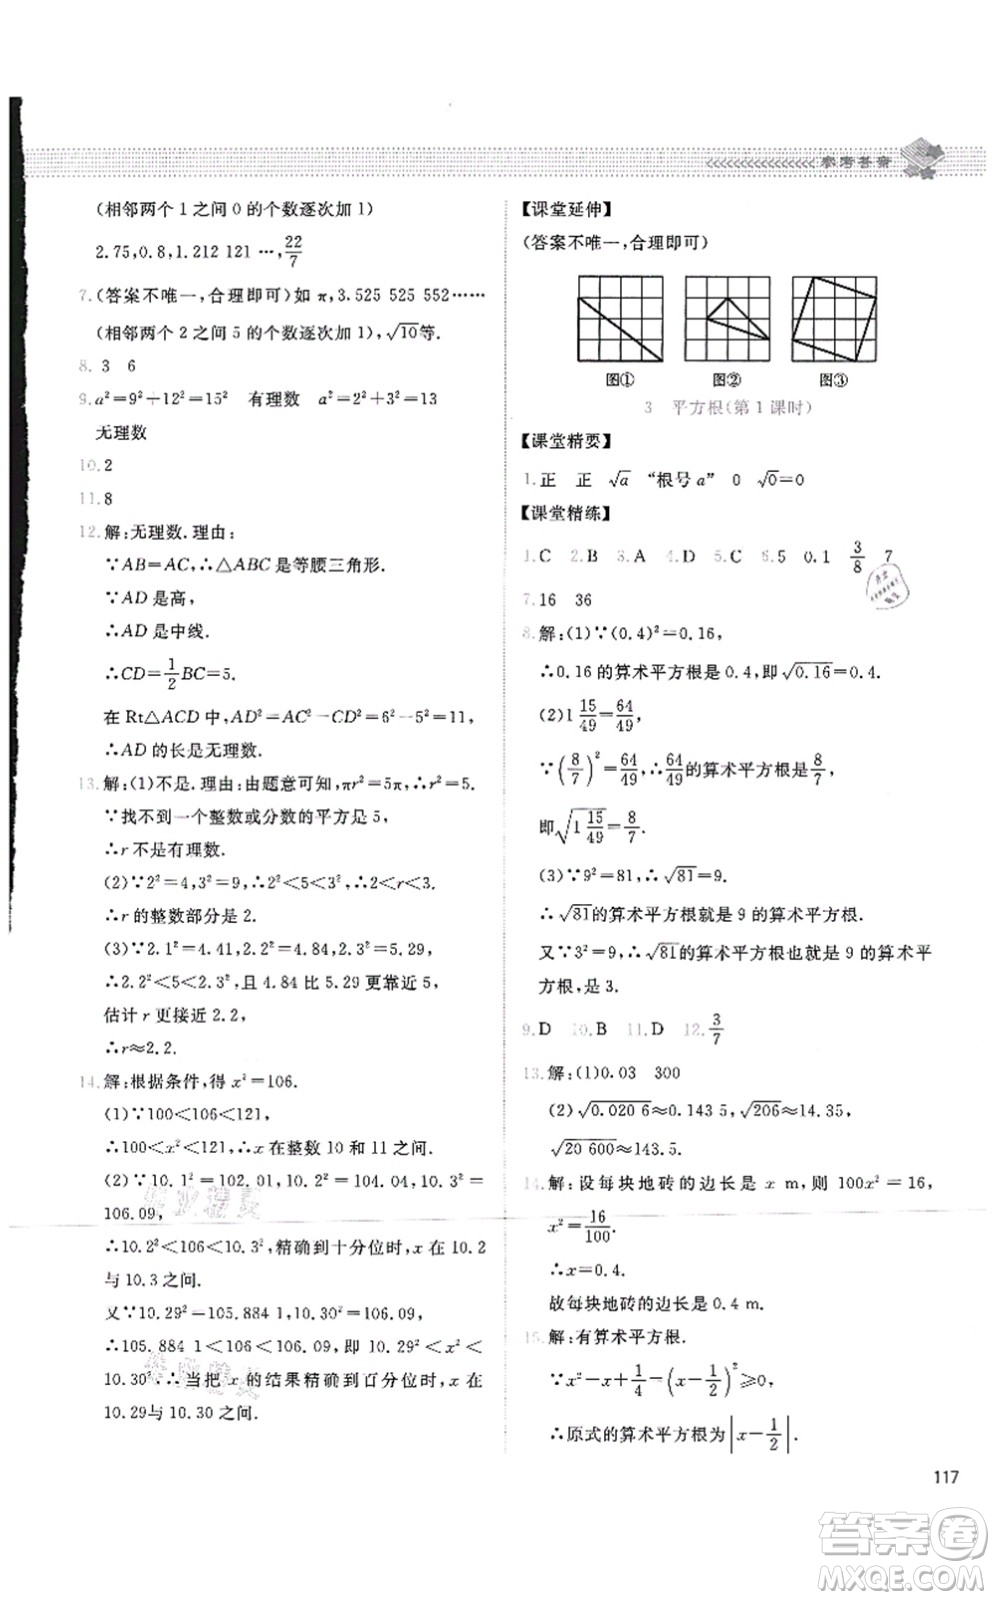 参考答案
(相邻两个 1 之间 0 的个数逐次加 1)
2.75,0.8,1.212 121 …,22/7
7.(答案不唯一,合理即可)如 π,3.525 525 552……
(相邻两个 2 之间 5 的个数逐次加 1),√10等.
8. 3 6
9.a²=9²+12²=15² 有理数 a²=2²+3²=13
无理数
10.2
11.8
12.解:无理数.理由:
∵AB=AC,∴△ABC是等腰三角形.
∵AD 是高,
∴AD 是中线.
∴CD=1/2BC=5.
在 Rt△ACD 中,AD²=AC²−CD²=6²−5²=11,
∴AD 的长是无理数.
13.解:(1)不是.理由:由题意可知,πr²=5π,∴r²=5.
∵找不到一个整数或分数的平方是 5,
∴r 不是有理数.
(2)∵2²=4,3²=9,∴2²<5<3²,∴2<r<3.
∴r 的整数部分是 2.
(3)∵2.1²=4.41,2.2²=4.84,2.3²=5.29,
∴2.2²<5<2.3²,且 4.84 比 5.29 更靠近 5,
估计 r 更接近 2.2,
∴r≈2.2.
14.解:根据条件,得 x²=106.
(1)∵100<106<121,
∴100<x²<121,∴x 在整数 10 和 11 之间.
(2)∵10.1²=102.01,10.2²=104.04,10.3²=
106.09,
∴10.2²<106<10.3²,精确到十分位时,x 在 10.2
与 10.3 之间.
又∵10.29²=105.884 1,10.30²=106.09,
∴105.884 1<106<106.09,即 10.29²<x²<
10.30².∴当把 x 的结果精确到百分位时,x 在
10.29与 10.30 之间.
【课堂延伸】
(答案不唯一,合理即可)
图① 图② 图③
3 平方根(第 1 课时)
【课堂精要】
1.正 正 √a “根号 a” 0 √0=0
【课堂精练】
1.C 2.B 3.A 4.D 5.C 6.5 0.1 3/8 7
7.16 36
8.解:(1)∵(0.4)²=0.16,
∴0.16 的算术平方根是 0.4,即√0.16=0.4.
(2)1 15/49=64/49,
∵(8/7)²=64/49,∴64/49的算术平方根是8/7,
即√(1 15/49)=8/7.
(3)∵9²=81,∴√81=9.
∴√81的算术平方根就是 9 的算术平方根.
又∵3²=9,∴√81的算术平方根就是 9 的算术平
方根,是 3.
9.D 10.B 11.D 12.3/7
13.解:(1)0.03 300
(2)√0.020 6≈0.143 5,√206≈14.35,
√20 600≈143.5.
14.解:设每块地砖的边长是 x m,则 100x²=16,
x²=16/100.
∴x=0.4.
故每块地砖的边长是 0.4 m.
15.解:有算术平方根.
∵x²−x+1/4=(x−1/2)²≥0,
∴原式的算术平方根为|x−1/2|.
117
答案卷
MXQE.COM